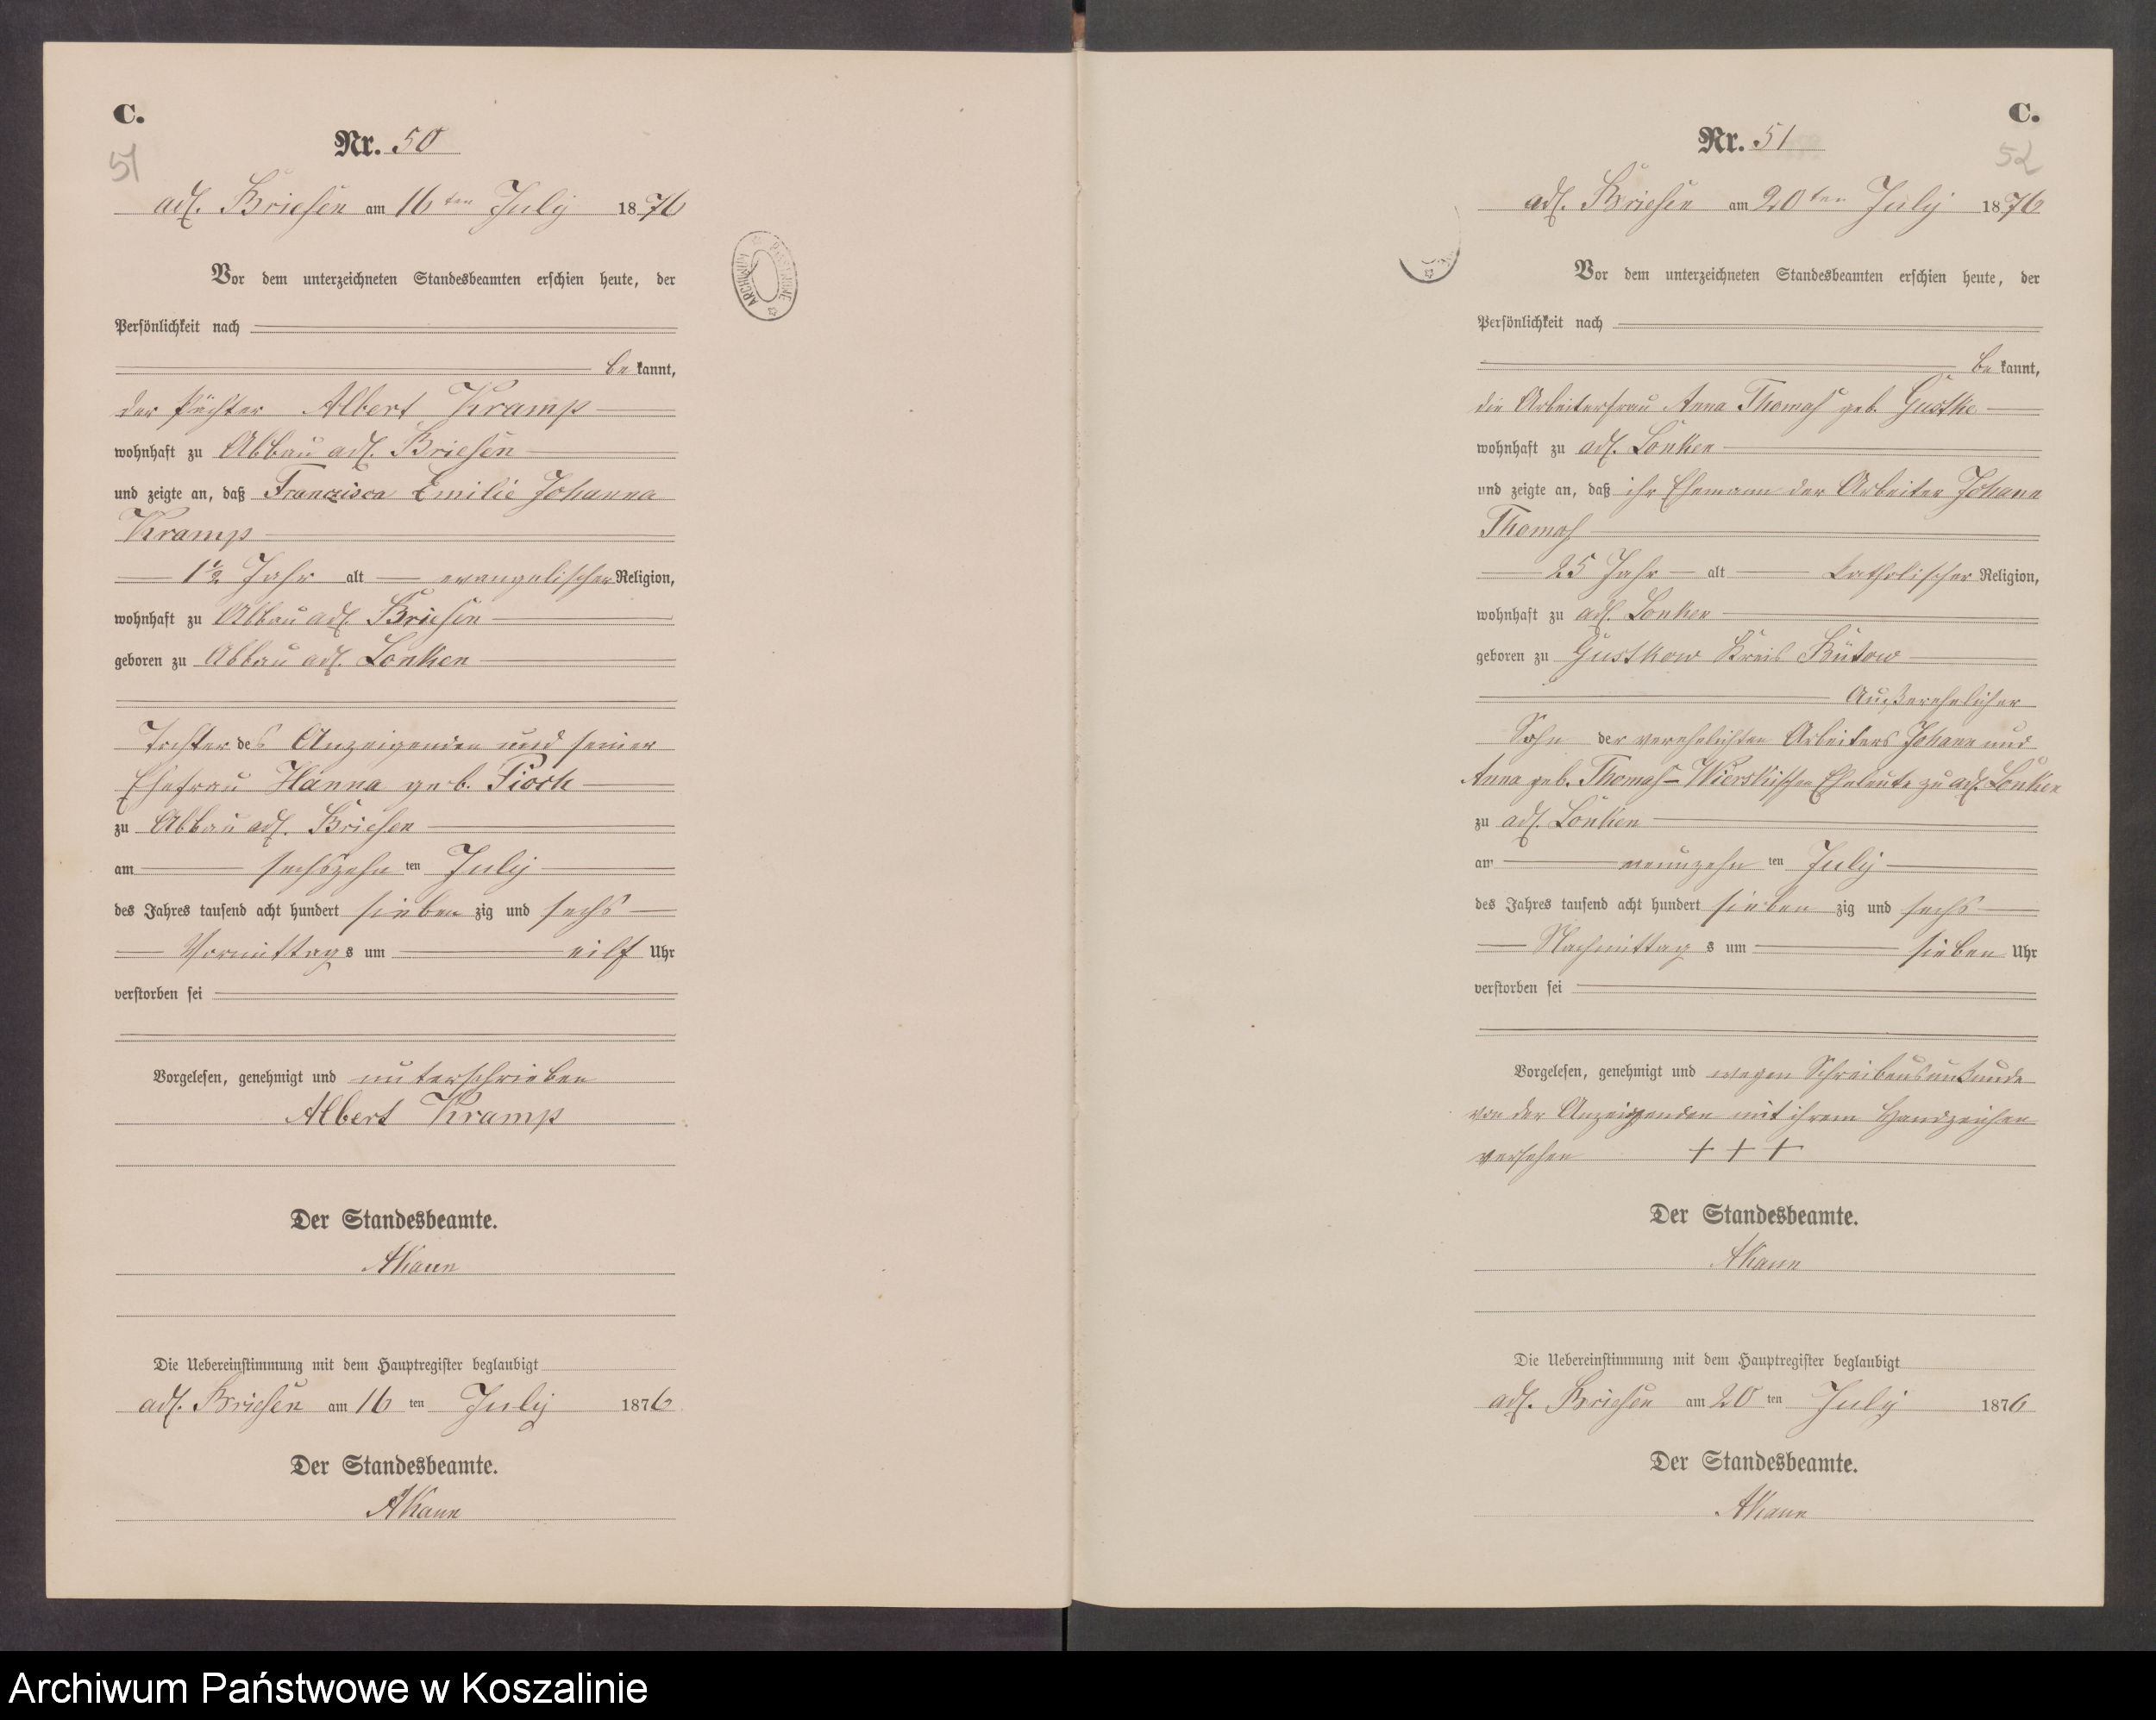 C.
51
Nr. 50
adl. Briesen am 16ten July 1876
Vor dem unterzeichneten Standesbeamten erschien heute, der
Persönlichkeit nach
bekannt,
der Pächter Albert Kramp
wohnhaft zu Abbau adl. Briesen
und zeigte an, daß Franzisca Emilie Johanna
Kramp
1 1/2 Jahr alt evangelischer Religion,
wohnhaft zu Abbau adl. Briesen
geboren zu Abbau adl. Lonken
Tochter des Anzeigenden und seiner
Ehefrau Hanna geb. Pioch
zu Abbau adl. Briesen
am sechszehn ten July
des Jahres tausend acht hundert sieben zig und sechs
Vormittags um eilf Uhr
verstorben sei
Vorgelesen, genehmigt und unterschrieben
Albert Kramp
Der Standesbeamte.
AKann
Die Uebereinstimmung mit dem Hauptregister beglaubigt
adl. Briesen am 16 ten July 1876
Der Standesbeamte.
AKann
ARCHIWUM PAŃSTWOWE
C.
52
Nr. 51
adl. Briesen am 20ten July 1876
Vor dem unterzeichneten Standesbeamten erschien heute, der
Persönlichkeit nach
bekannt,
die Arbeiterfrau Anna Thomas geb. Gustke
wohnhaft zu adl. Lonken
und zeigte an, daß ihr Ehemann der Arbeiter Johann
Thomas
25 Jahr alt katholischer Religion,
wohnhaft zu adl. Lonken
geboren zu Gustkow Kreis Bütow
Außerehelicher
Sohn der verehelichten Arbeiters Johann und
Anna geb. Thomas - Wierskischen Eheleute zu adl. Lonken
zu adl. Lonken
am neunzehn ten July
des Jahres tausend acht hundert sieben zig und sechs
Nachmittags um sieben Uhr
verstorben sei
Vorgelesen, genehmigt und wegen Schreibensunkunde
von der Anzeigenden mit ihrem Handzeichen
versehen + + +
Der Standesbeamte.
AKann
Die Uebereinstimmung mit dem Hauptregister beglaubigt
adl. Briesen am 20 ten July 1876
Der Standesbeamte.
AKann
Archiwum Państwowe w Koszalinie